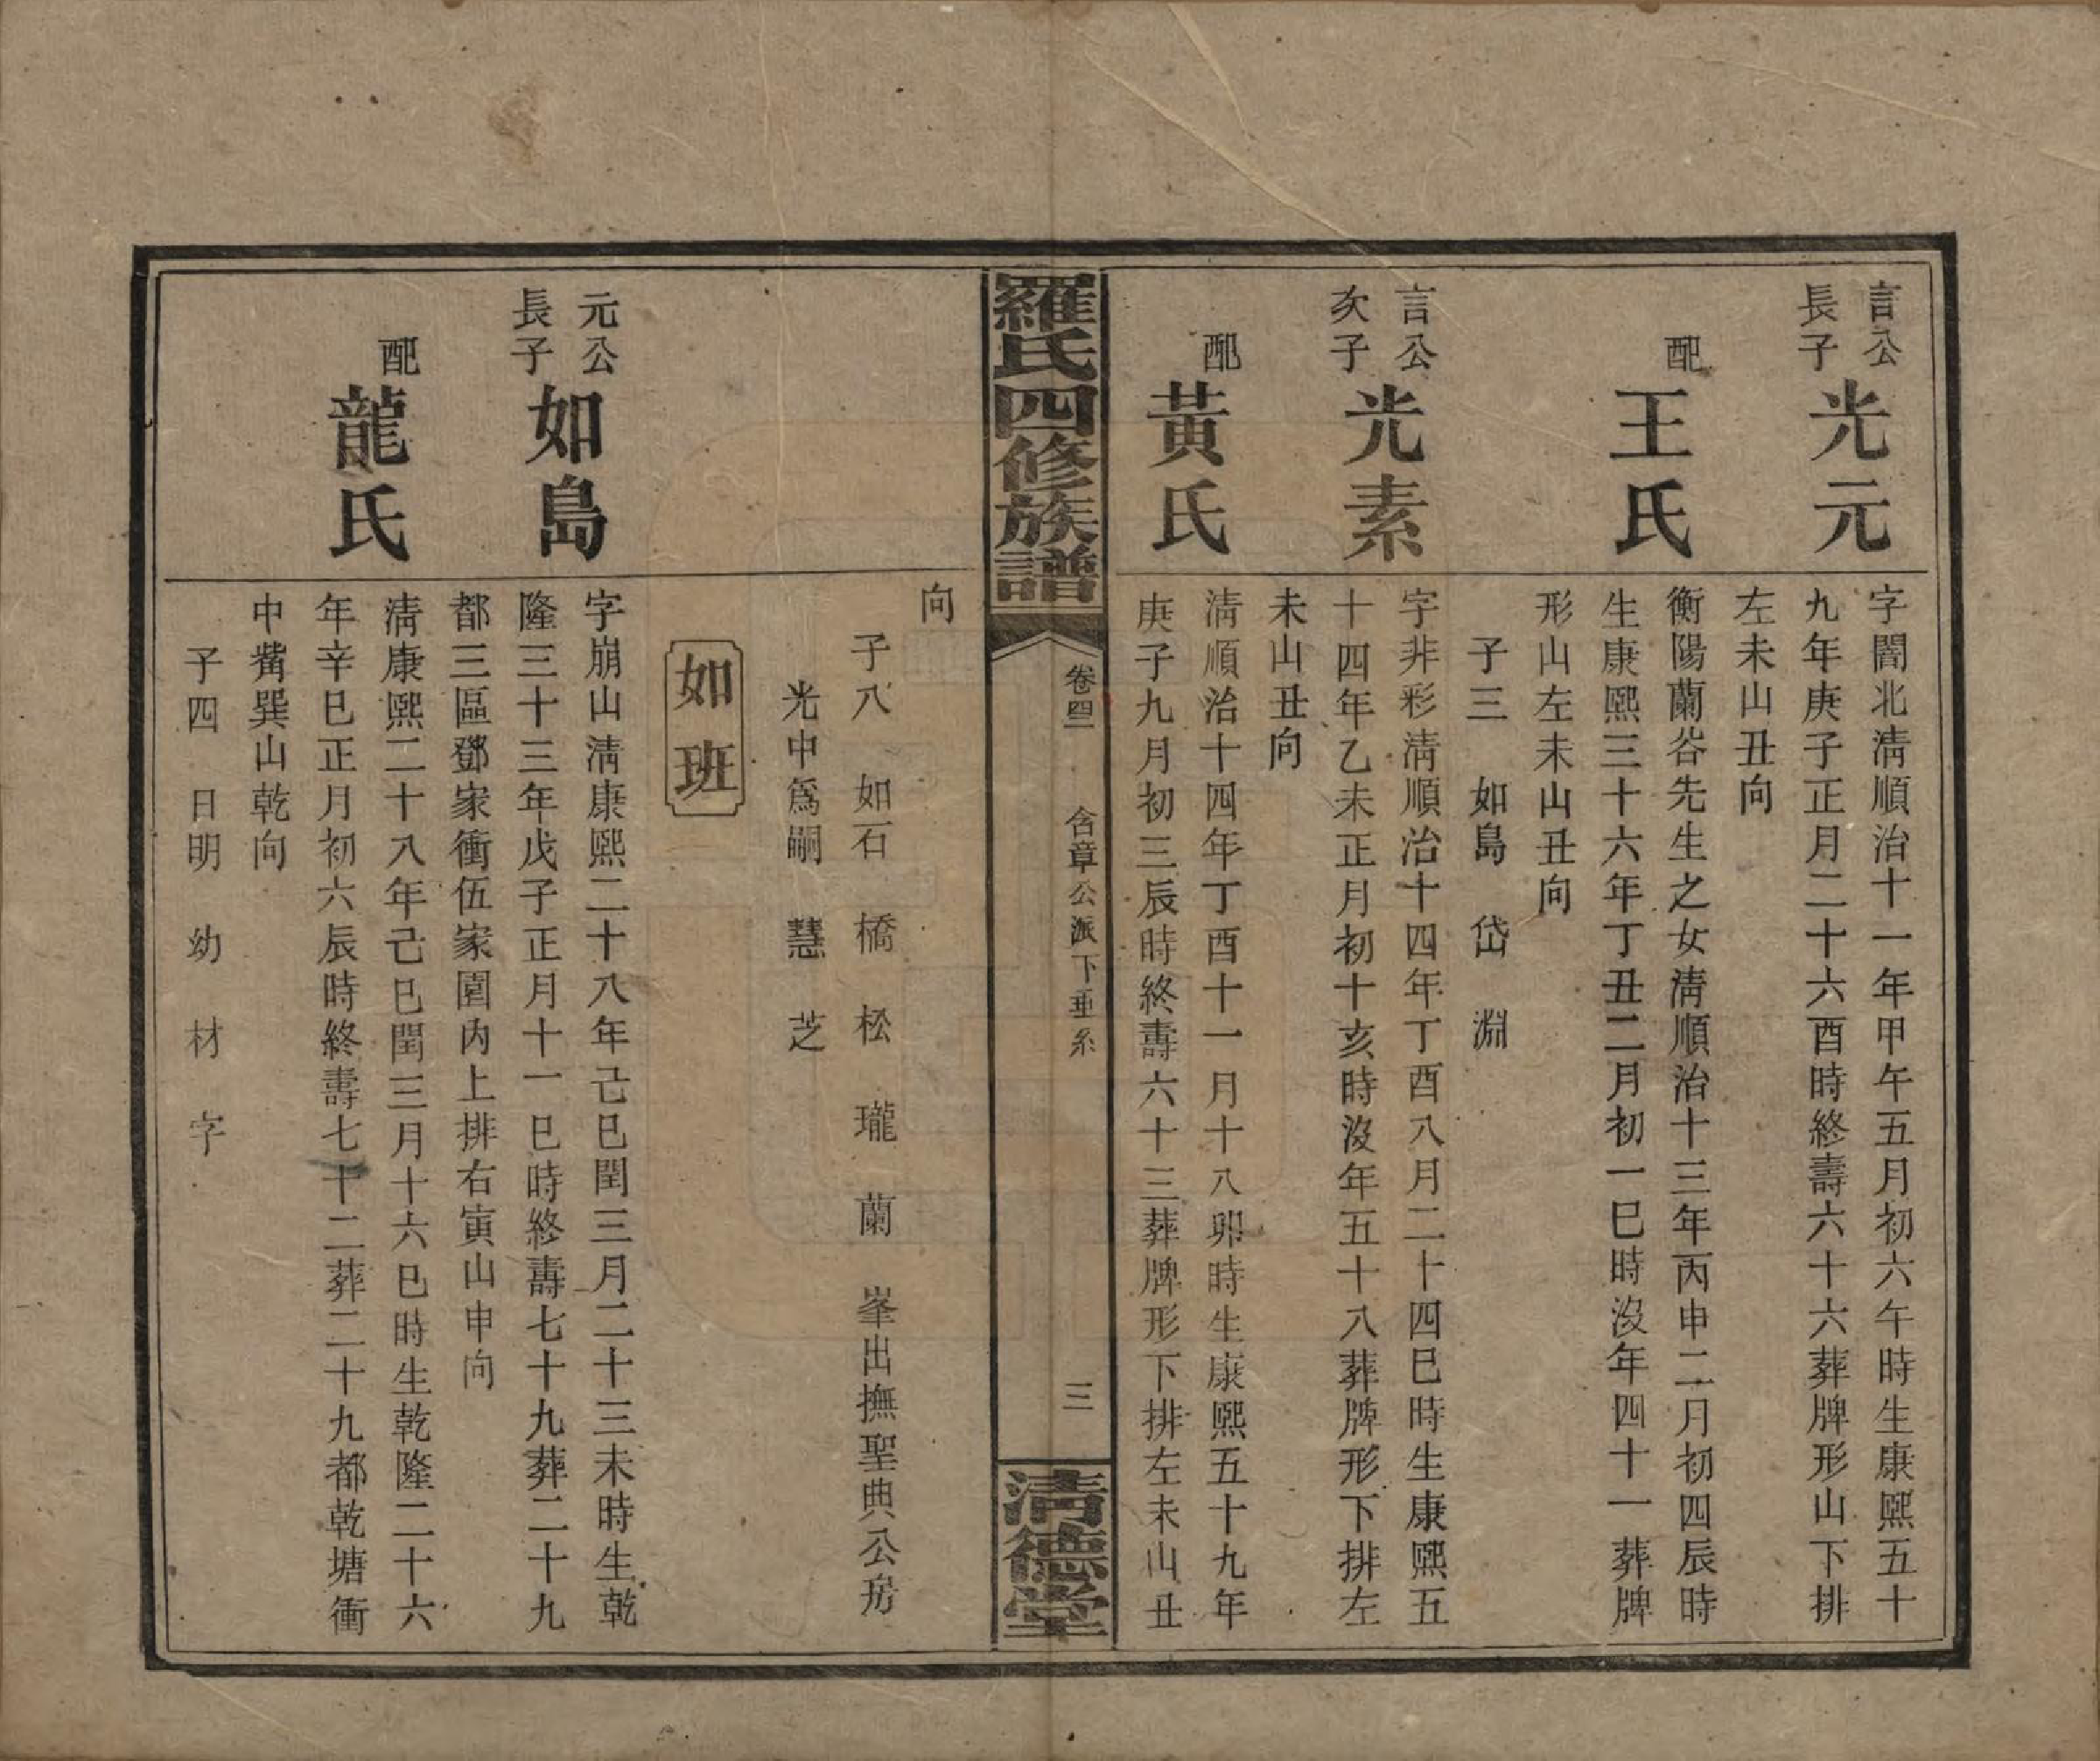 言公
長子
光元
字闇北淸順治十一年甲午五月初六午時生康熙五十
九年庚子正月二十六酉時終壽六十六葬牌形山下排
左未山丑向
配
王氏
衡陽蘭谷先生之女淸順治十三年丙申二月初四辰時
生康熙三十六年丁丑二月初一巳時沒年四十一葬牌
形山左未山丑向
子三 如島 岱 淵
言公
次子
光素
字非彩淸順治十四年丁酉八月二十四巳時生康熙五
十四年乙未正月初十亥時沒年五十八葬牌形下排左
未山丑向
配
黃氏
淸順治十四年丁酉十一月十八卯時生康熙五十九年
庚子九月初三辰時終壽六十三葬牌形下排左未山丑
羅氏四修族譜
卷四 含章公派下垂系
三
淸德堂
向
子八 如石 橋 松 瓏 蘭 峯出撫聖典公房
光中爲嗣 慧 芝
如班
元公
長子
如島
字崩山淸康熙二十八年己巳閏三月二十三未時生乾
隆三十三年戊子正月十一巳時終壽七十九葬二十九
都三區鄧家衝伍家園內上排右寅山申向
配
龍氏
淸康熙二十八年己巳閏三月十六巳時生乾隆二十六
年辛巳正月初六辰時終壽七十二葬二十九都乾塘衝
中嘴巽山乾向
子四 日明 幼 材 字